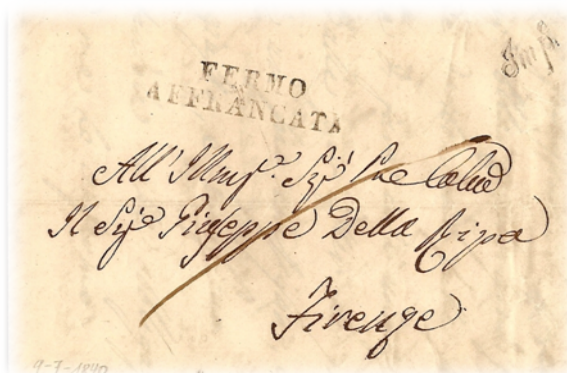 FERMO
AFFRANCATA
All'Illmo. Sig.
Il Sige Giuseppe Della Ripa
Firenze
9-7-1840